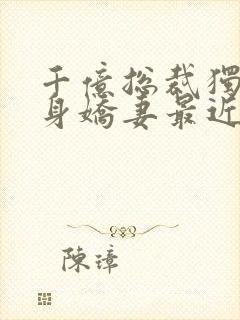 千億總裁獨
身嬌妻最近
陳璋